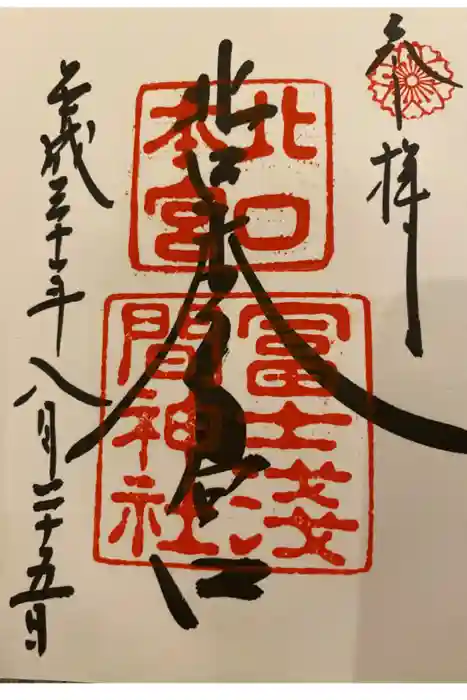 奉拝
北口本宮
北口
本宮
冨士浅
間神社
平成三十年八月二十五日